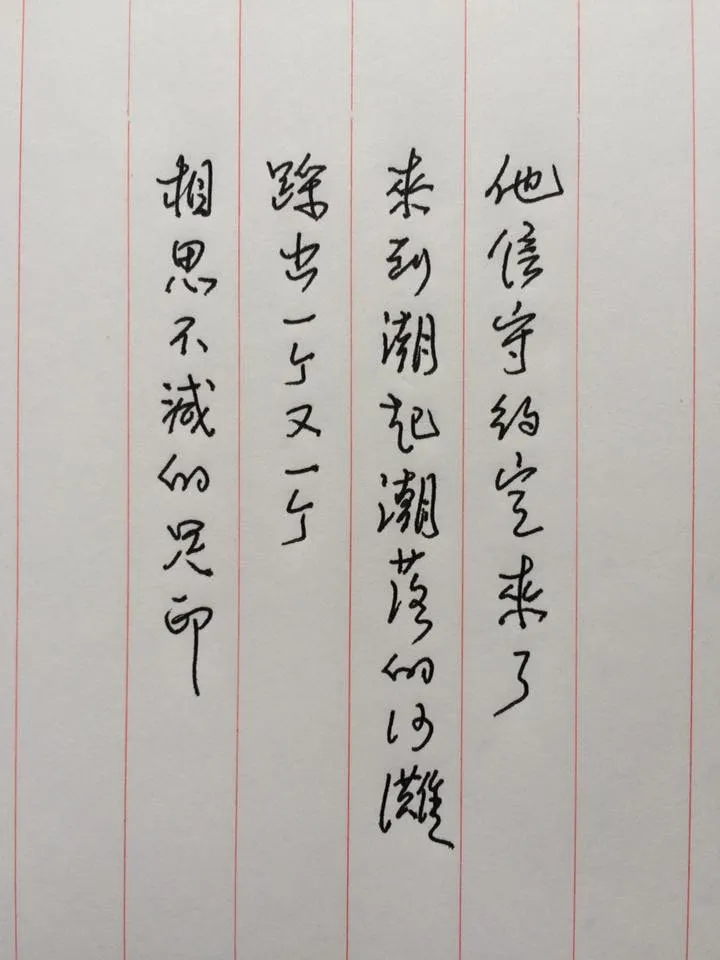 他信守约定来了
來到潮起潮落的沙灘
踩出一个又一个
相思不減的咒印